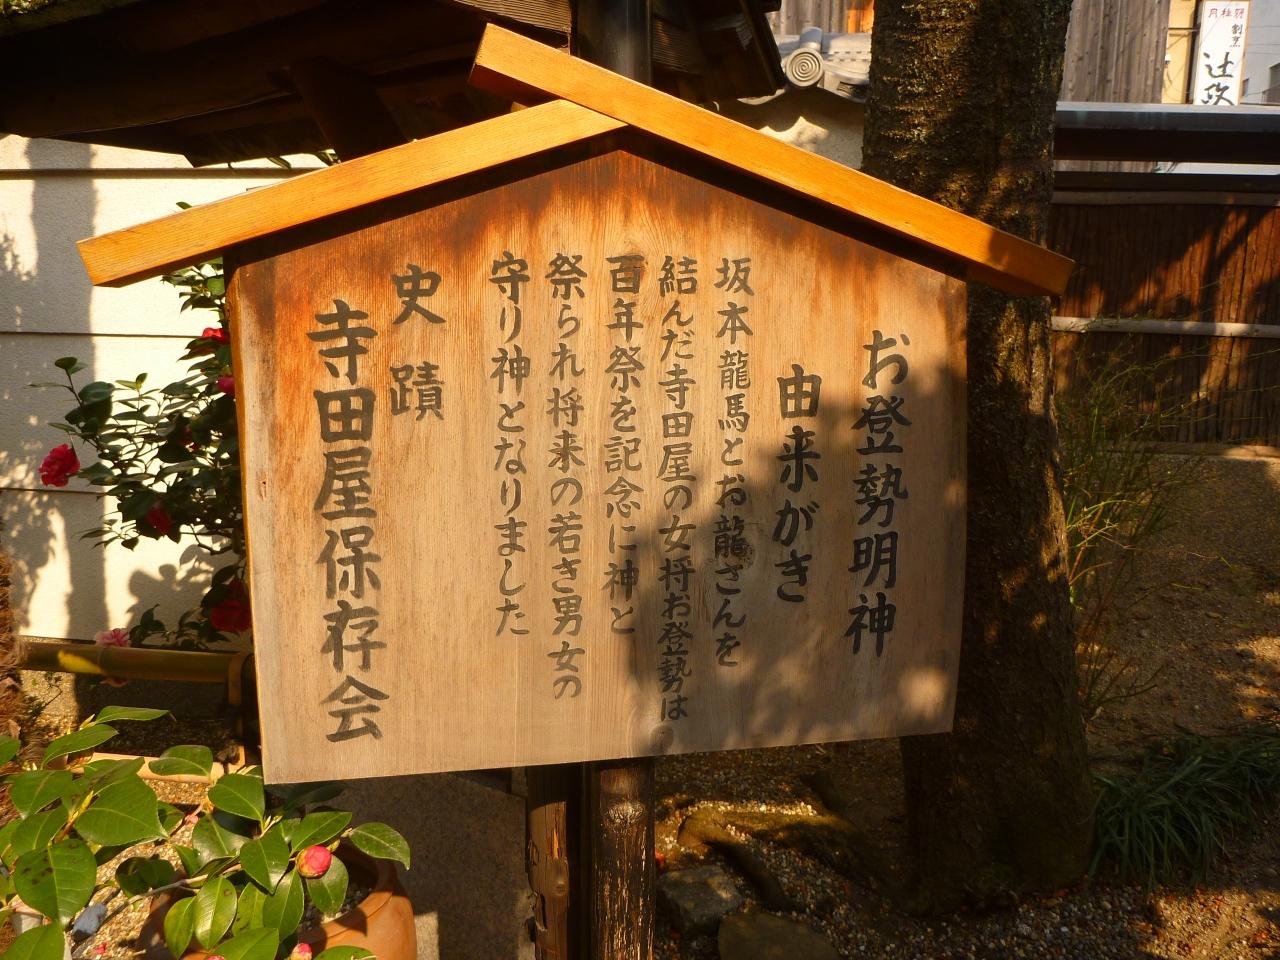 お登勢明神
由来がき
坂本龍馬とお龍さんを
結んだ寺田屋の女将お登勢は
百年祭を記念に神と
祭られ将来の若き男女の
守り神となりました
史蹟
寺田屋保存会
月桂冠
割烹
辻政